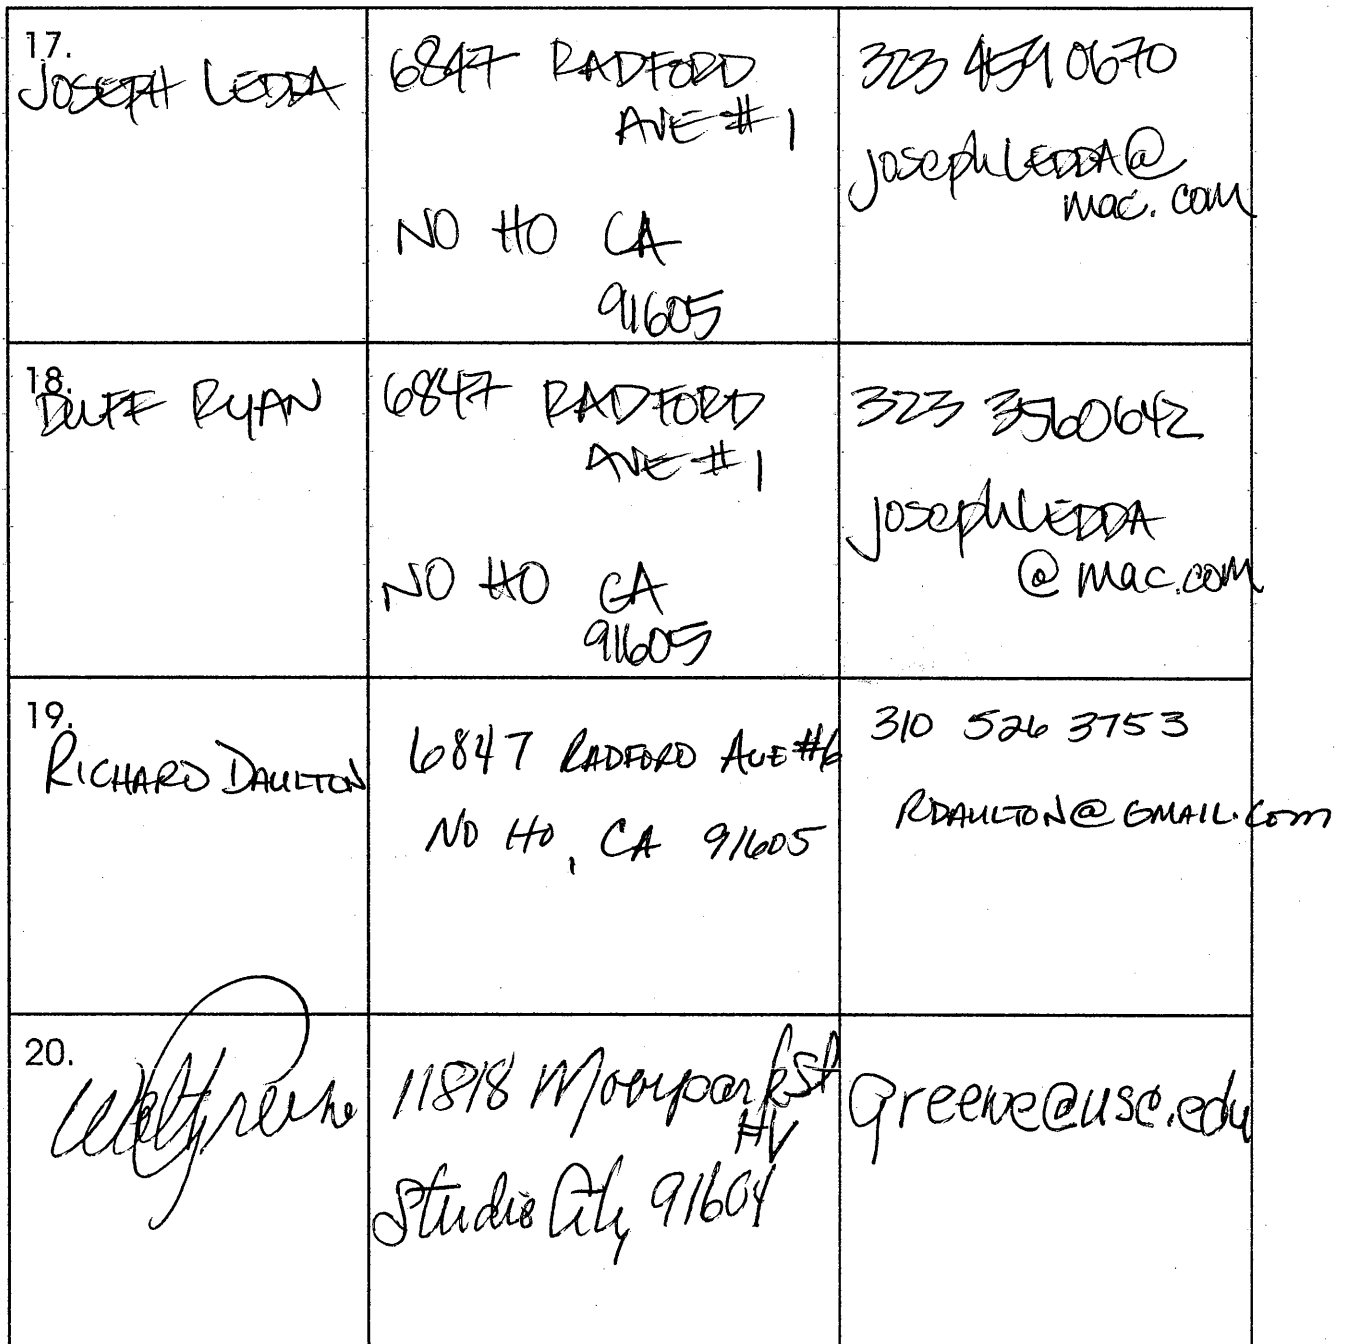 17.
JOSEPH LEDDA
6847 RADFORD
AVE # 1
NO HO CA
91605
323 459 0670
josephLEDDA@
mac.com
18.
DUFF RYAN
6847 RADFORD
AVE # 1
NO HO CA
91605
323 3560642
josephLEDDA
@mac.com
19.
RICHARD DAULTON
6847 RADFORD AVE #6
NO HO, CA 91605
310 526 3753
RDAULTON@GMAIL.COM
20.
11818 Moorpark St
Studio City 91604
greene@usc.edu